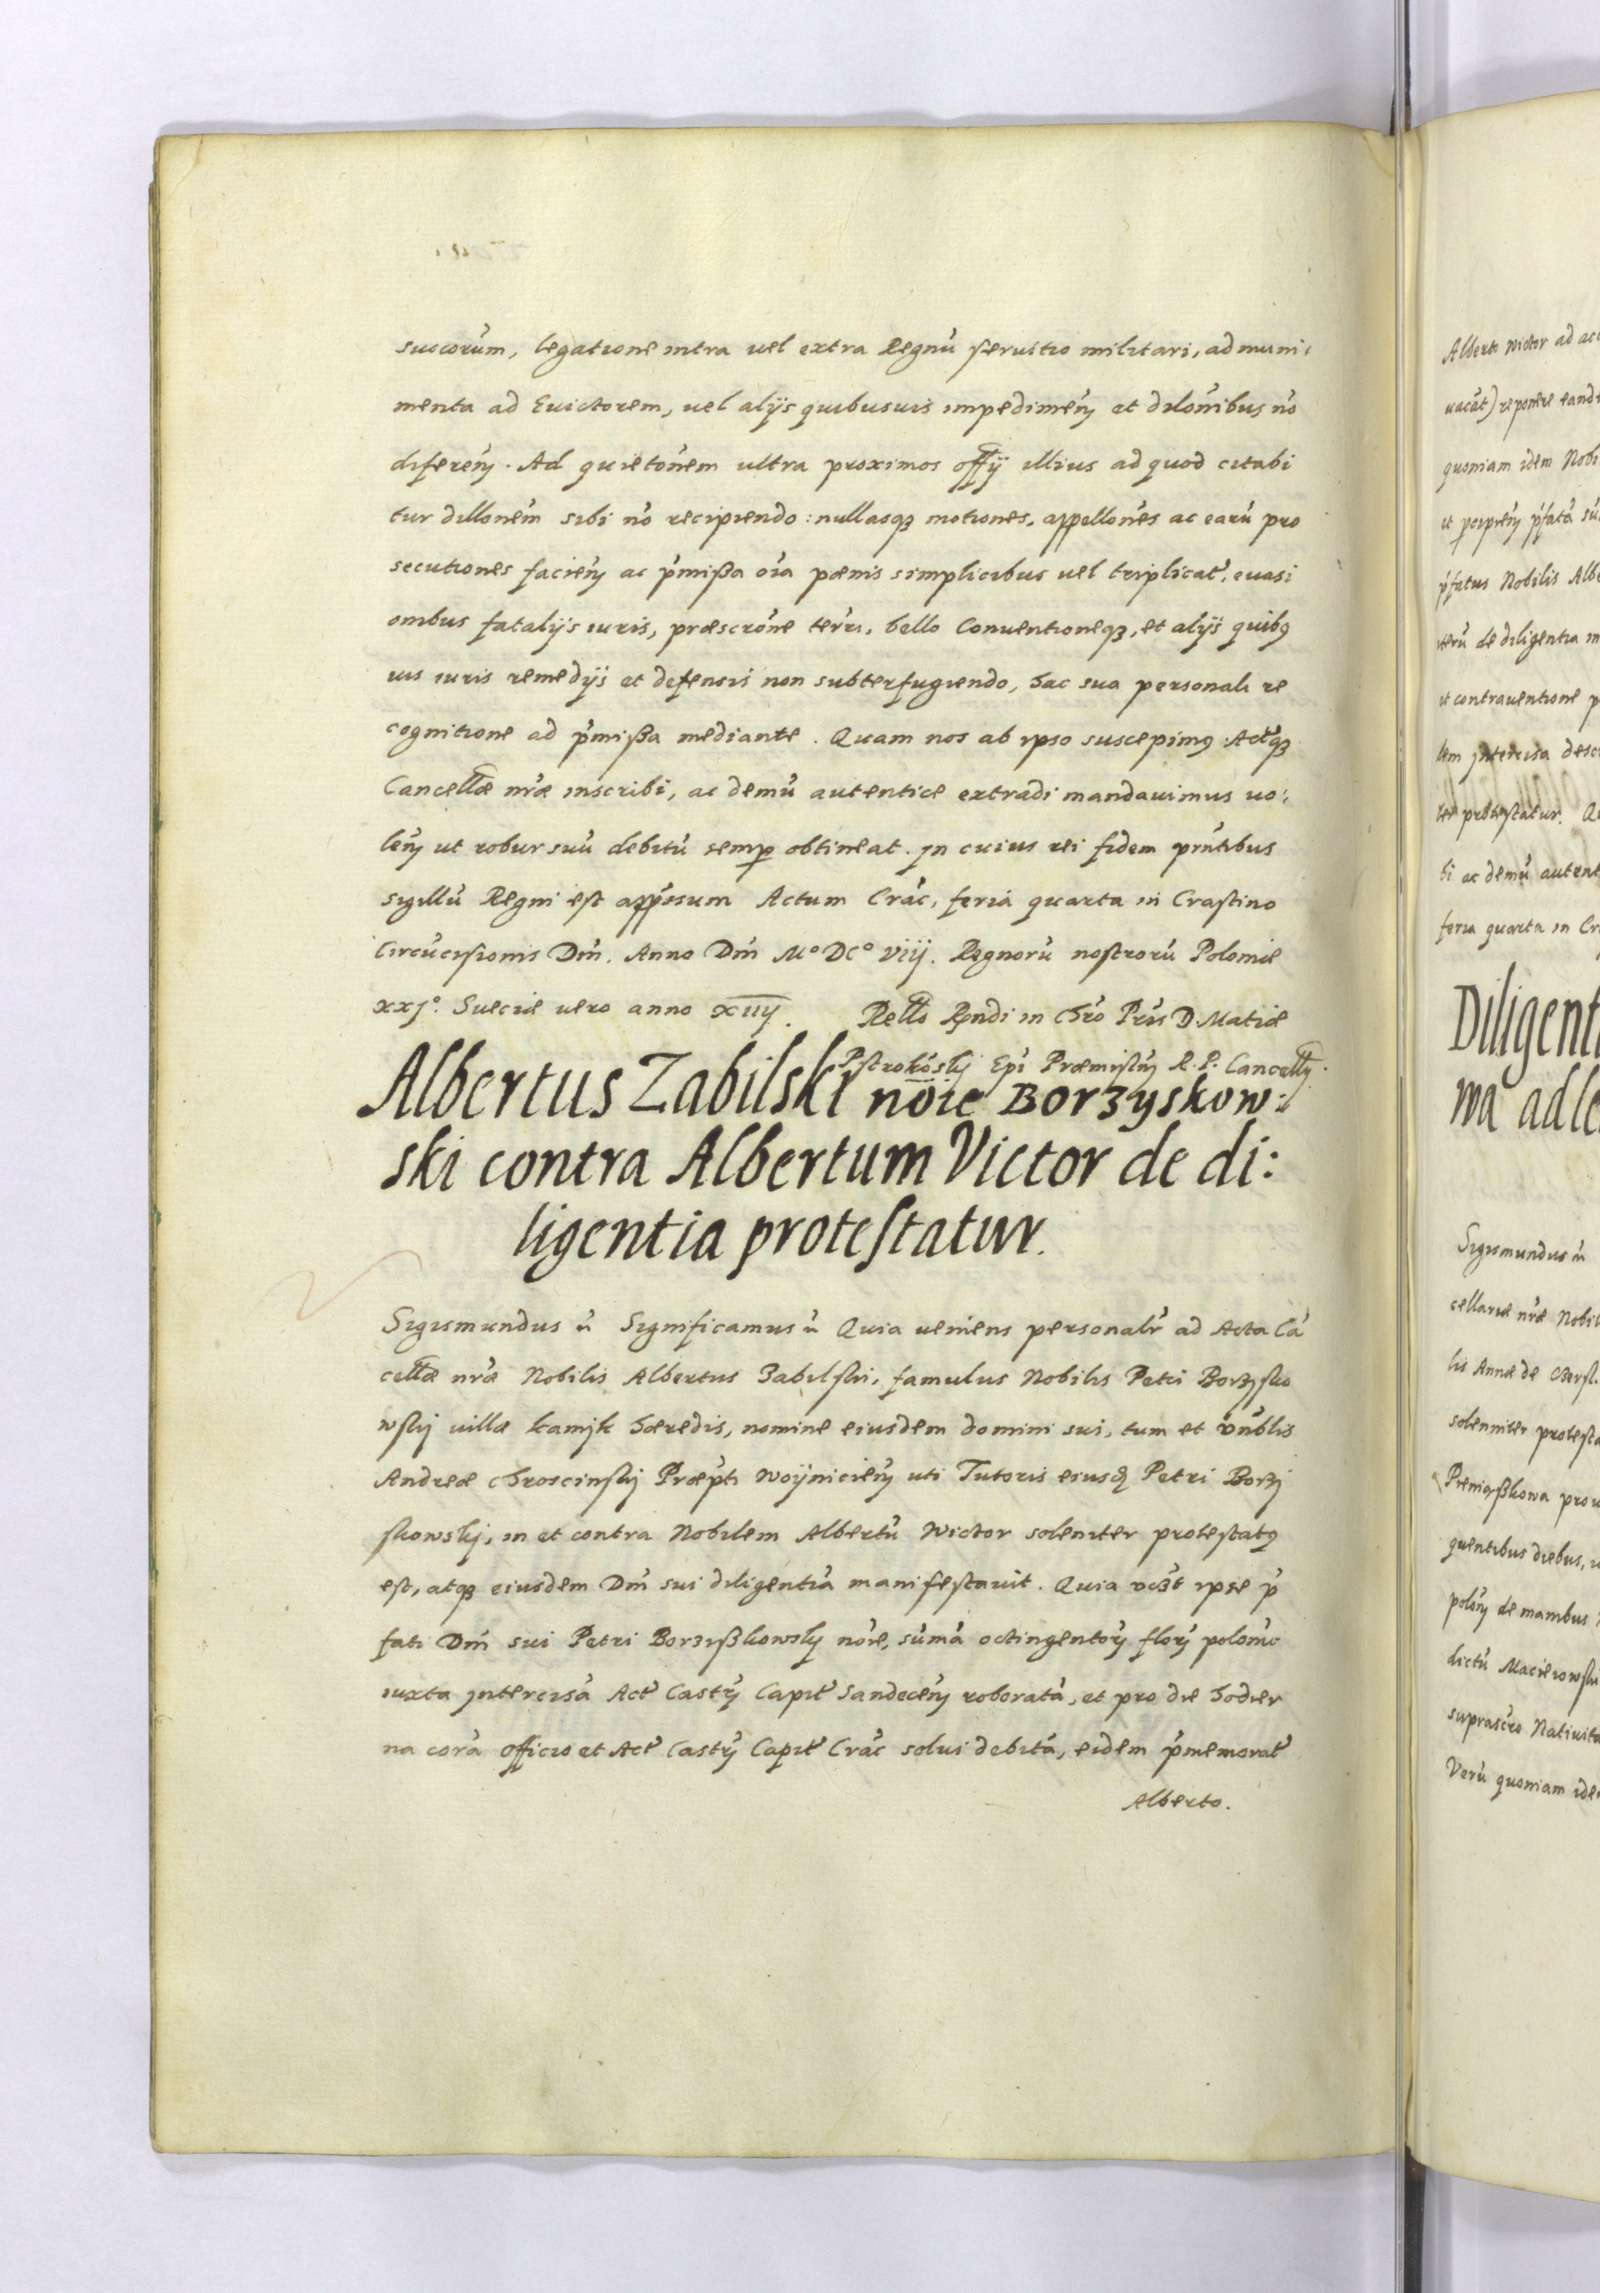 succorum, legatione intra uel extra Regnū seruitio militari, ad muni
menta ad Euictorem, uel alijs quibusuis impedimen̄ et dilōnibus nō
diferen̄. Ad quietōnem ultra proximos offij illius ad quod citabi
tur dillonēm sibi nō recipiendo: nullasq₃ motiones, appellōnes ac earū pro
secutiones facien̄ ac p̄mißa oīa pœnis simplicibus uel triplicat̄, euasi
onibus fatalijs iuris, præscrōne terr̄i, bello Conuentioneq₃, et alijs quibꝰ
uis iuris remedijs et defensis non subterfugiendo, hac sua personali re
cognitione ad p̄mißa mediante. Quam nos ab ipso suscepimꝰ Actisq₃
Cancellæ nr̄æ inscribi, ac demū autentice extradi mandauimus uo:
len̄ ut robur suū debitū semp obtineat. Jn cuius rei fidem prn̄tibus
sigillū Regni est app̄ssum Actum Crāc, feria quarta in Crastino
Circūcisionis Dn̄i. Anno Dn̄i M° DC° Viij. Regnorū nostrorū Poloniæ
xxj°. Sueciæ uero anno xiiij. Rello Rn̄di in Chrō Pris D. Matiæ
Pstrokōskj Epi Præmislin̄ R. P. Cancellj.
Albertus Zabilski nōie Borzyskow:
ski contra Albertum Victor de di:
ligentia protestatur.
Sigismundus n̄ Significamus n̄ Quia ueniens personalr̄ ad Acta Cā
cellæ nr̄æ Nobilis Albertus Zabilski, famulus Nobilis Petri Borzysko
wskj uillæ kamjk hæredis, nomine eiusdem domini sui, tum et Vn̄blis
Andreæ Chroscinskj Præp̄ti Woÿnicien̄ uti Tutoris eiusd Petri Borzi
skowskj, in et contra Nobilem Albertū Wictor soleniter protestatꝰ
est, atq₃ eiusdem Dn̄i sui diligentiā manifestauit. Quia vcz̄t ipse p̄
fati Dn̄i sui Petri Borzißkowskj nōie, sūmā octingentoꝝ floꝝ polonīc
iuxta jntercisā Act̄ Castrn̄ Capit̄ Sandecen̄ roboratā, et pro die hodier
na corā officio et Act̄ Castrn̄ Capit̄ Crāc solui debitā, eidem p̄memorat̄
Alberto.
Diligenti
Sigismundus n̄
cellariæ nr̄æ Nobil
solenniter protesta
quentibus diebus,
Verū quoniam ide